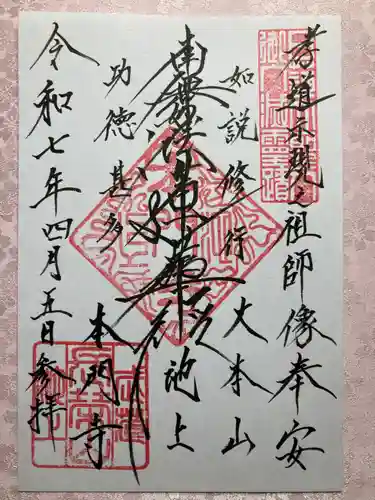 孝道示現之祖師像奉安
如説修行
大本山
南無妙法蓮華経
池上
功徳甚多
本門寺
令和七年四月五日参拝